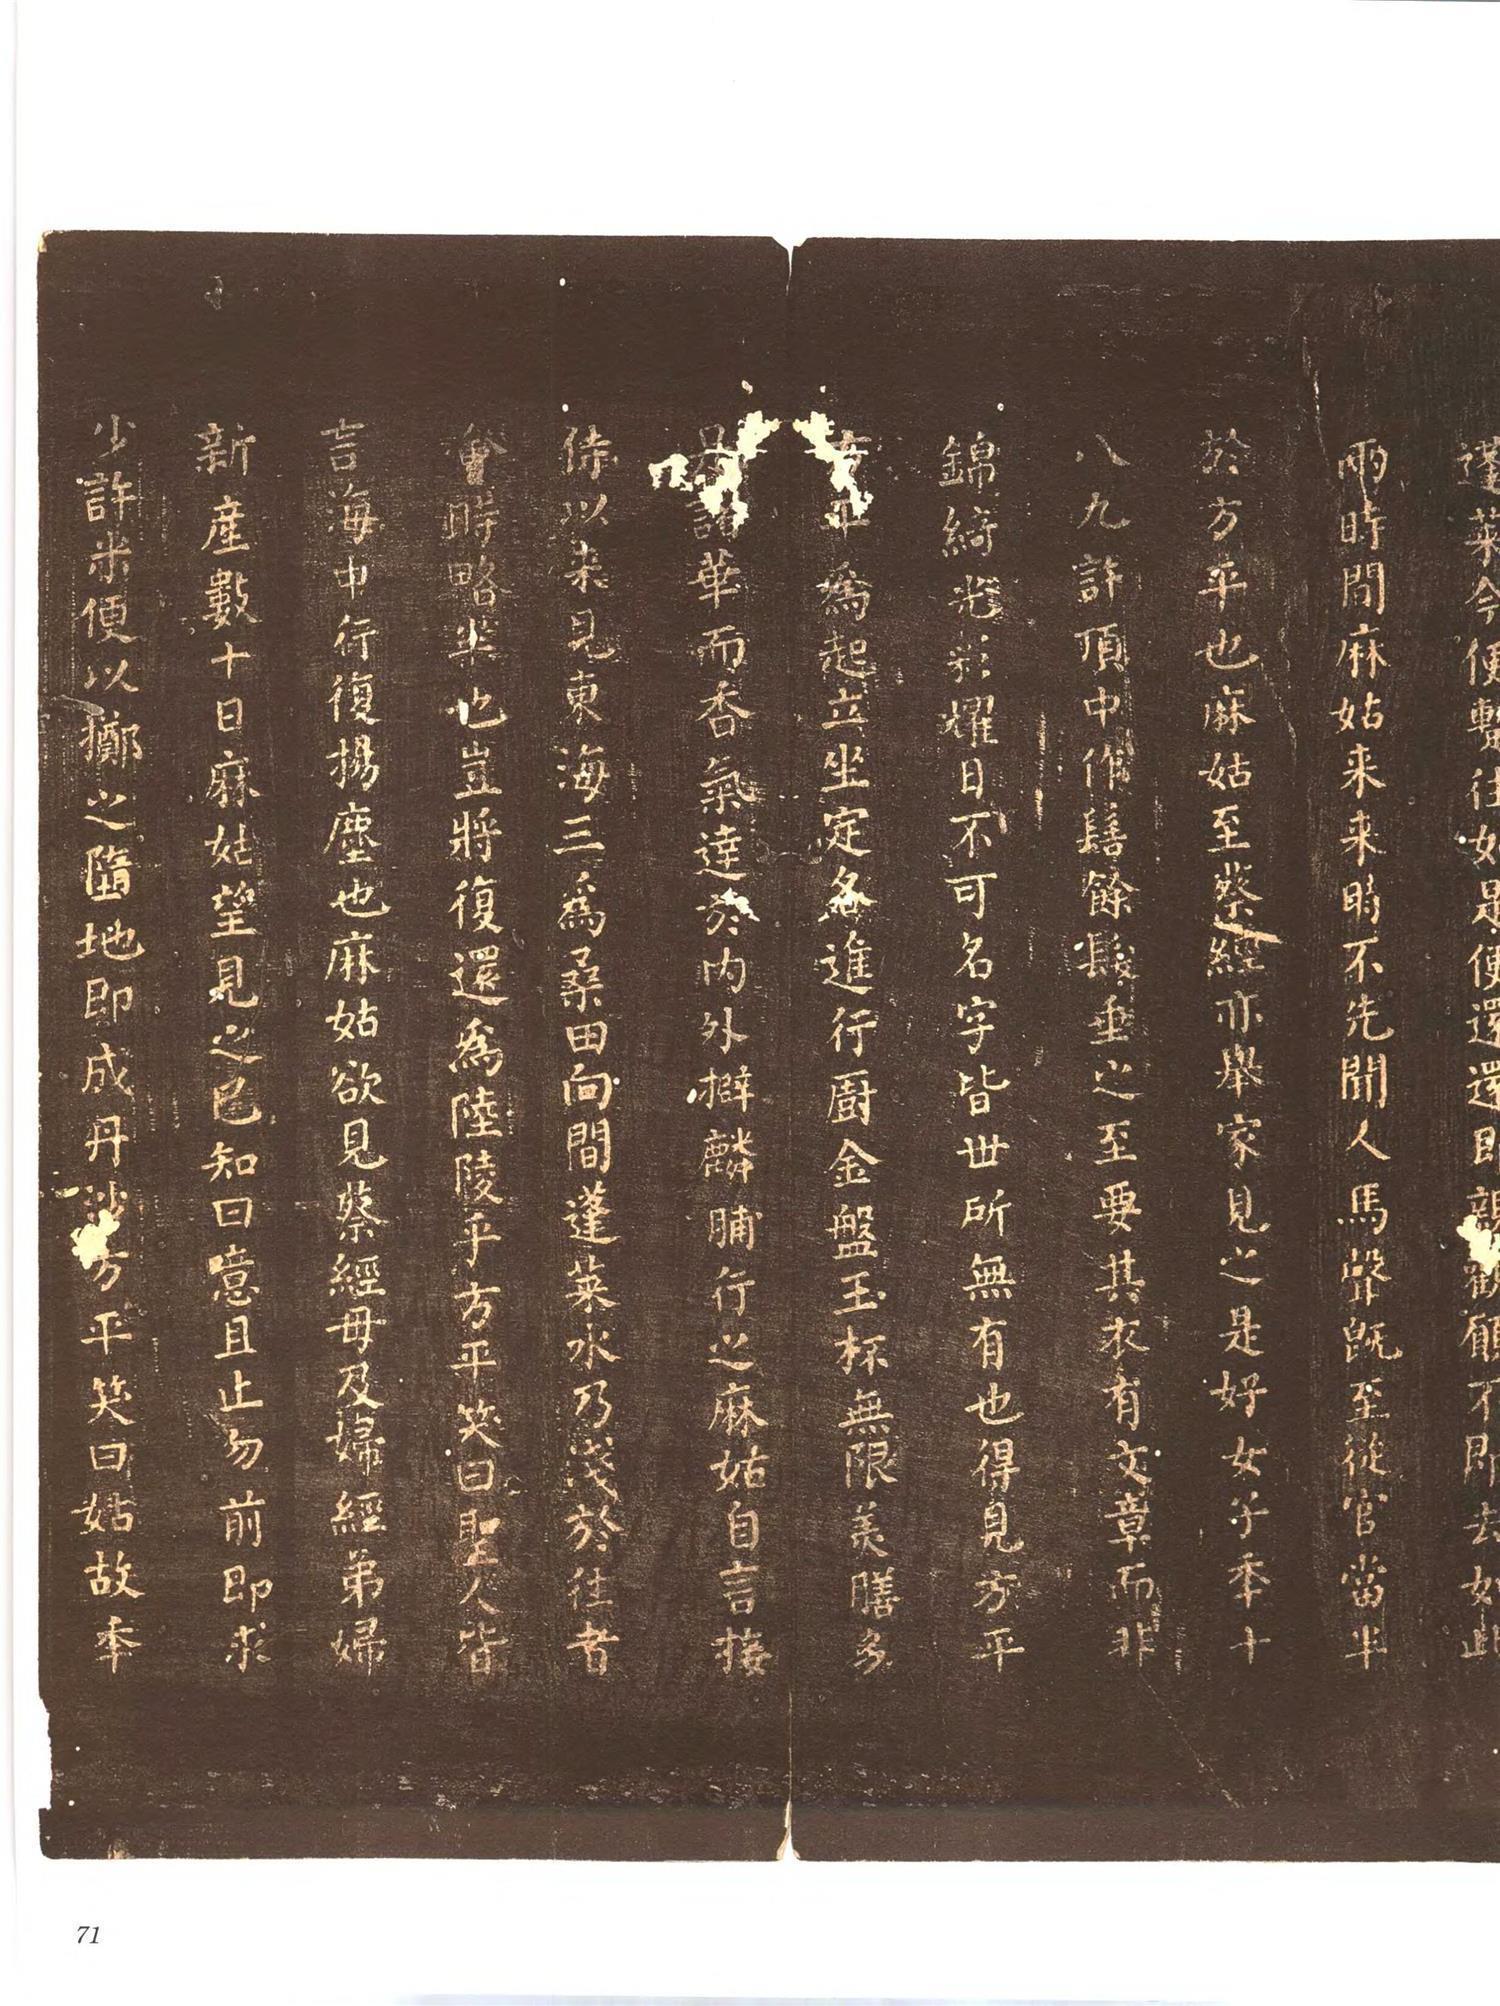 蓬萊今便暫往如是便還還即親觀願不即去如此
兩時間麻姑来来時不先聞人馬聲旣至從官當半
於方平也麻姑至蔡經亦舉家見之是好女子秊十
八九許頂中作髻餘髮垂之至要其衣有文章而非
錦綺光彩耀日不可名字皆世所無有也得見方平
方平爲起立坐定各進行厨金盤玉杯無限美膳多
是諸華而香氣達於內外擗麟脯行之麻姑自言接
侍以来見東海三爲桑田向間蓬萊水乃淺於往者
會時略半也豈將復還爲陸陵乎方平笑曰聖人皆
言海中行復揚塵也麻姑欲見蔡經母及婦經弟婦
新産數十日麻姑望見之已知曰噫且止勿前即求
少許米便以擲之墮地即成丹沙方平笑曰姑故秊
71